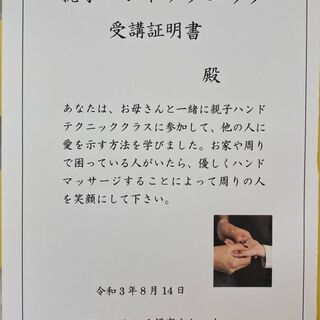 受講証明書
殿
あなたは、お母さんと一緒に親子ハンド
テクニッククラスに参加して、他の人に
愛を示す方法を学びました。お家や周り
で困っている人がいたら、優しくハンド
マッサージすることによって周りの人
を笑顔にして下さい。
令和3年8月14日